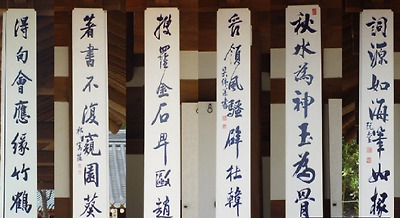 詞源如海筆如椽
秋水為神玉為骨
領風騷辟杜韓
搜羅金石卑歐趙
著書不復窺園葵
得句會應緣竹鶴